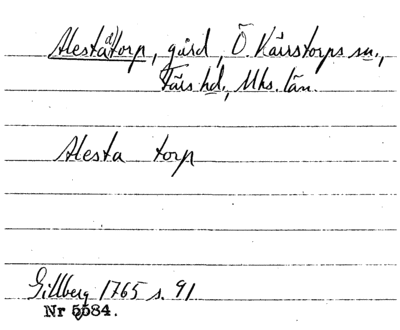 Alestatorp, gård, Ö. Kärrstorps sn.,
Färs hd., Mhs. län.
Alesta torp
Gillberg 1765 s. 91
Nr 5584.